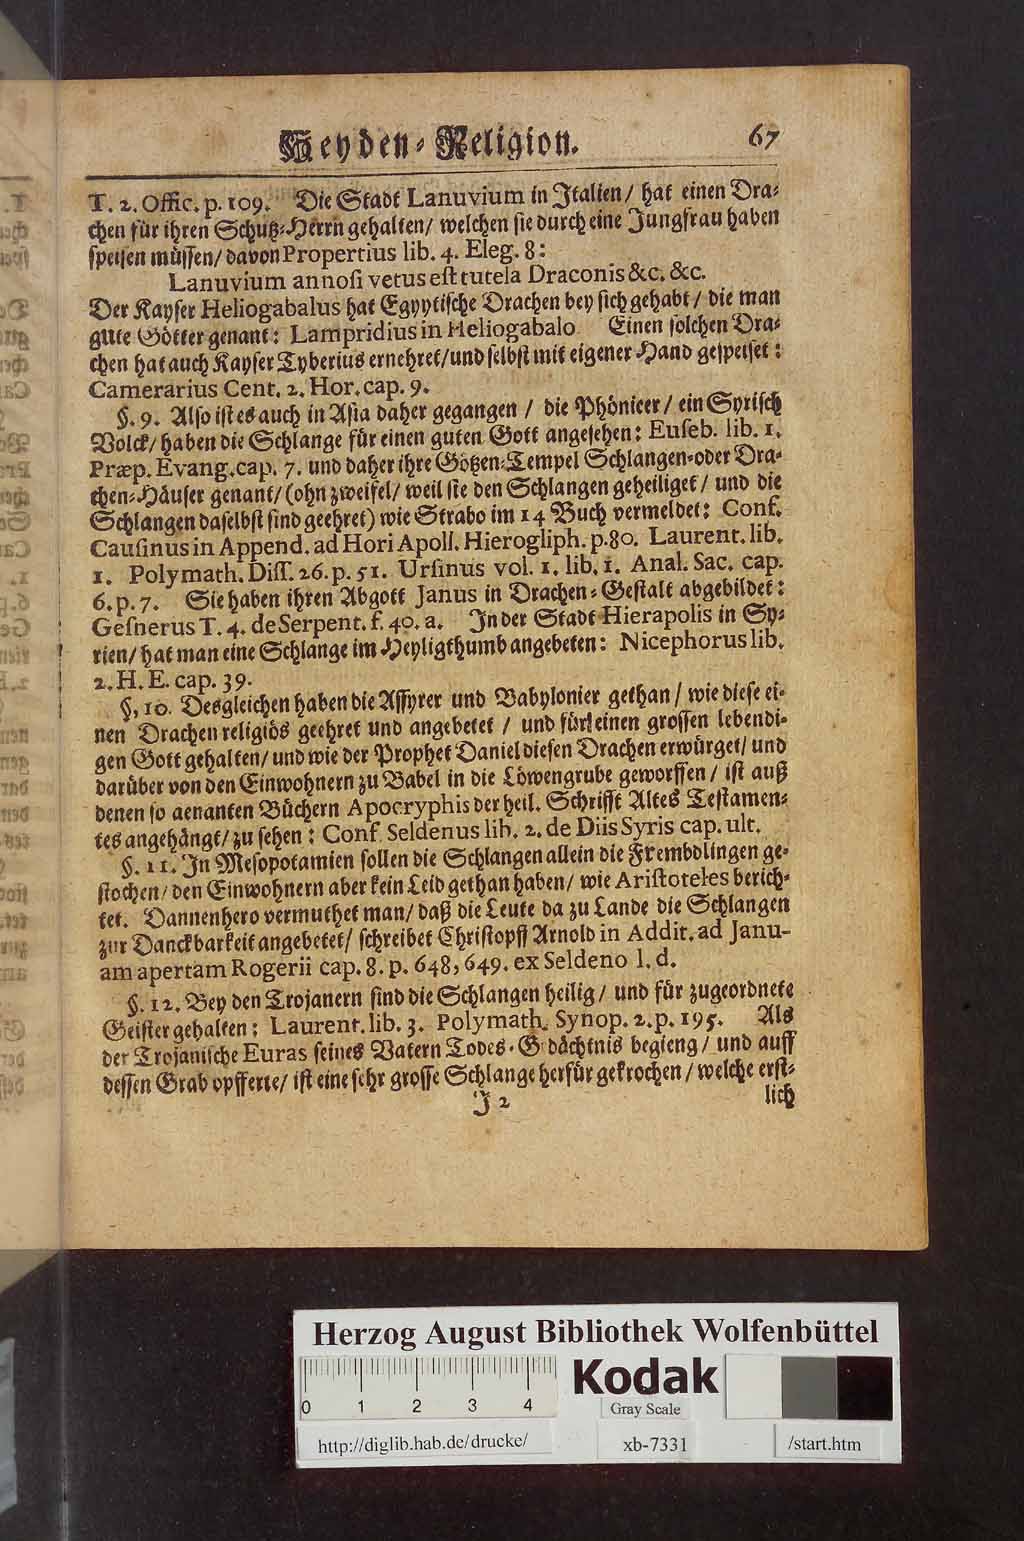 Heyden-Religion. 67
T. 2. Offic. p. 109. Die Stadt Lanuvium in Italien/ hat einen Dra-
chen für ihren Schutz-Herrn gehalten/ welchen sie durch eine Jungfrau haben
speisen müssen/ davon Propertius lib. 4. Eleg. 8:
Lanuvium annoſi vetus eſt tutela Draconis &c. &c.
Der Kayser Heliogabalus hat Egyptische Drachen bey sich gehabt/ die man
gute Götter genant: Lampridius in Heliogabalo Einen solchen Dra-
chen hat auch Kayser Tyberius ernehret/ und selbst mit eigener Hand gespeiset:
Camerarius Cent. 2. Hor. cap. 9.
§. 9. Also ist es auch in Asia daher gegangen / die Phönicer/ ein Syrisch
Volck/ haben die Schlange für einen guten Gott angesehen: Euſeb. lib. 1.
Præp. Evang. cap. 7. und daher ihre Götzen-Tempel Schlangen-oder Dra-
chen-Häuser genant/ (ohn zweifel/ weil sie den Schlangen geheiliget/ und die
Schlangen daselbst sind geehret) wie Strabo im 14 Buch vermeldet: Conf.
Cauſinus in Append. ad Hori Apoll. Hierogliph. p. 80. Laurent. lib.
1. Polymath. Diſſ. 26. p. 51. Urſinus vol. 1. lib. 1. Anal. Sac. cap.
6. p. 7. Sie haben ihren Abgott Janus in Drachen-Gestalt abgebildet:
Geſnerus T. 4. de Serpent. f. 40. a. In der Stadt Hierapolis in Sy-
rien/ hat man eine Schlange im Heyligthumb angebeten: Nicephorus lib.
2. H. E. cap. 39.
§, 10. Desgleichen haben die Assyrer und Babylonier gethan/ wie diese ei-
nen Drachen religiös geehret und angebetet / und für einen grossen lebendi-
gen Gott gehalten/ und wie der Prophet Daniel diesen Drachen erwürget/ und
darüber von den Einwohnern zu Babel in die Löwengrube geworffen/ ist auß
denen so genanten Büchern Apocryphis der heil. Schrifft Altes Testamen-
tes angehängt/ zu sehen: Conf. Seldenus lib. 2. de Diis Syris cap. ult.
§. 11. In Mesopotamien sollen die Schlangen allein die Frembdlingen ge-
stochen/ den Einwohnern aber kein Leid gethan haben/ wie Ariſtoteles berich-
tet. Dannenhero vermuthet man/ daß die Leute da zu Lande die Schlangen
zur Danckbarkeit angebetet/ schreibet Christopff Arnold in Addit. ad Janu-
am apertam Rogerii cap. 8. p. 648, 649. ex Seldeno l. d.
§. 12. Bey den Trojanern sind die Schlangen heilig/ und für zugeordnete
Geister gehalten: Laurent. lib. 3. Polymath. Synop. 2. p. 195. Als
der Trojanische Euras seines Vatern Todes-G dächtnis begieng/ und auff
dessen Grab opfferte/ ist eine sehr grosse Schlange herfür gekrochen/ welche erst-
J 2 lich
Herzog August Bibliothek Wolfenbüttel
0 1 2 3 4
Kodak
Gray Scale
http://diglib.hab.de/drucke/ xb-7331 /start.htm